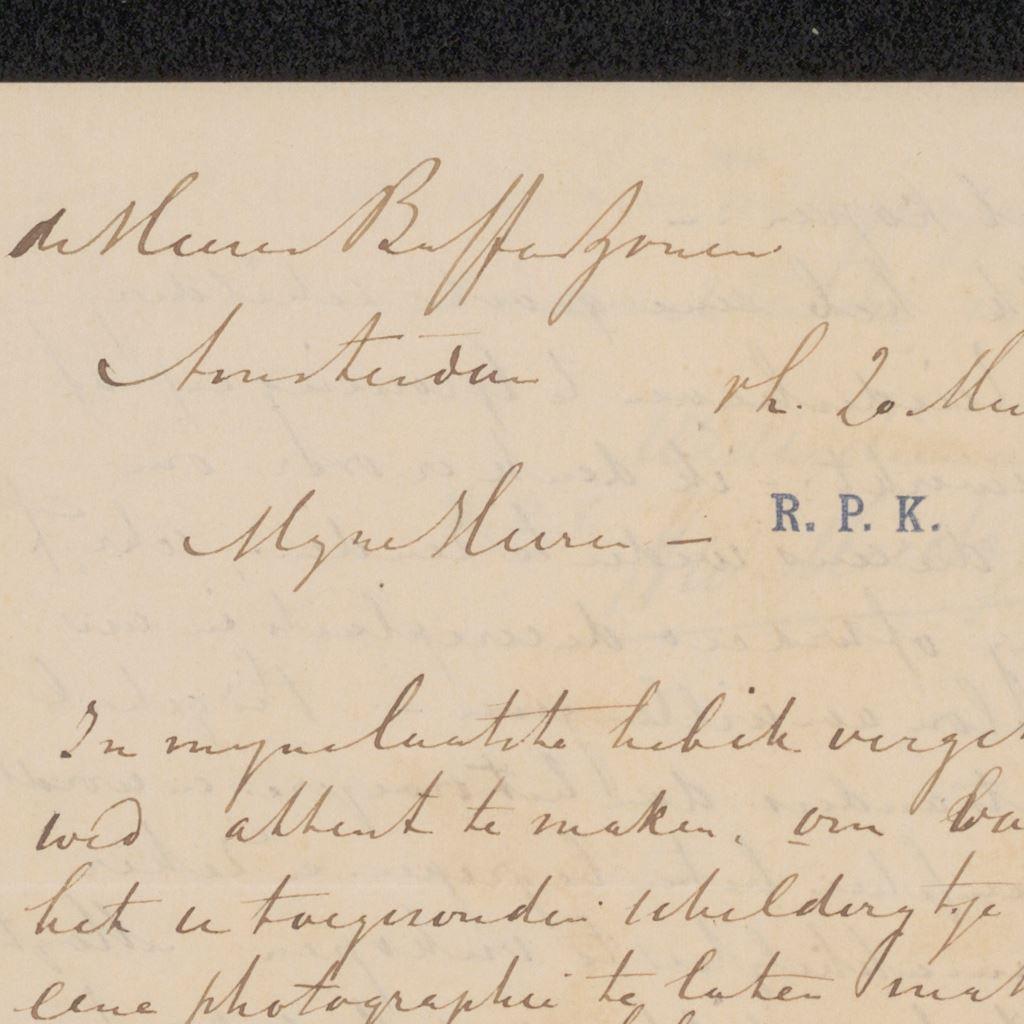 de Heeren Buffa & Zonen
Amsterdam
rh. 20 Me
Myne Heeren —
R. P. K.
In myne laatste heb ik verge
wed attent te maken, om va
het u toegezonden schilderytje
eene photographie te laten mak